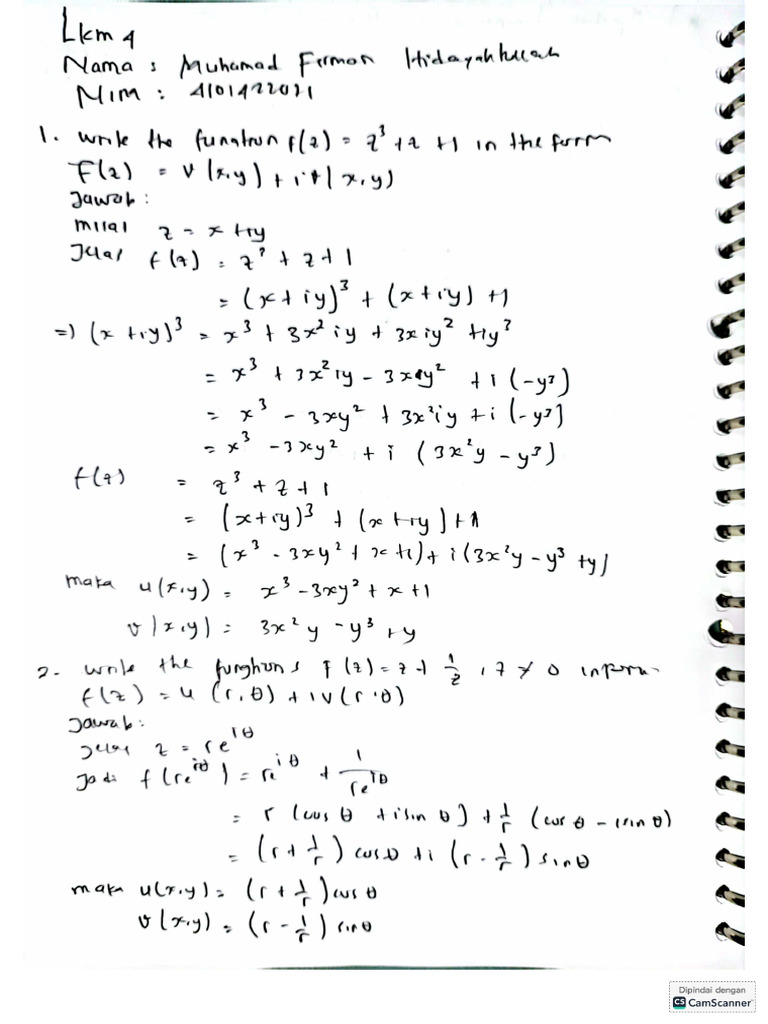 Lkm 4
Nama : Muhamad Firman Hidayahtullah
NIM : 4101422021
1. Write the function f(z) = z³ + z + 1 in the form
F(z) = v(x,y) + iv(x,y)
Jawab :
misal z = x + iy
f(z) = z³ + z + 1
= (x + iy)³ + (x + iy) + 1
=) (x + iy)³ = x³ + 3x² iy + 3x iy² + iy³
= x³ + 3x² iy - 3xy² + i (-y³)
= x³ - 3xy² + 3x² iy + i (-y³)
= x³ - 3xy² + i (3x²y - y³)
f(z) = z³ + z + 1
= (x + iy)³ + (x + iy) + 1
= (x³ - 3xy² + x + 1) + i (3x²y - y³ + y)
maka u(x,y) = x³ - 3xy² + x + 1
v(x,y) = 3x²y - y³ + y
2. Write the funghions f(z) = z + 1/z , z ≠ 0 in form
f(z) = u (r,θ) + i v (r,θ)
Jawab :
z = re^iθ
Jadi f(re^iθ) = re^iθ + 1/re^iθ
= r (cos θ + i sin θ) + 1/r (cos θ - i sin θ)
= (r + 1/r) cos θ + i (r - 1/r) sin θ
maka u(x,y) = (r + 1/r) cos θ
v(x,y) = (r - 1/r) sin θ
Dipindai dengan
CS CamScanner